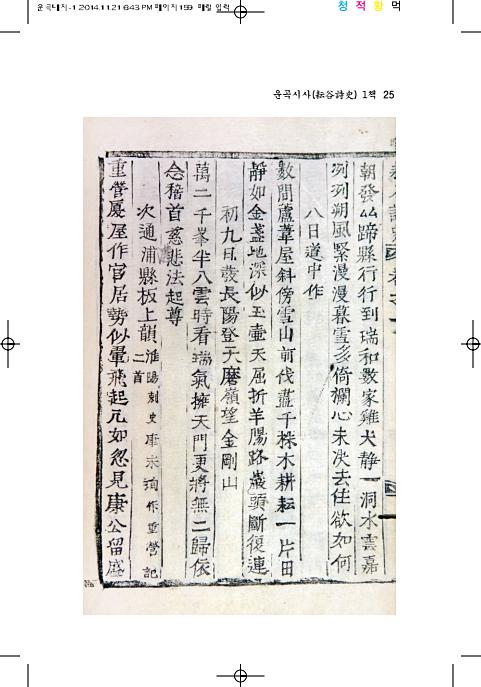 운곡대지-1 2014.11.21 6:43 PM 페이지159 매킬 입력
청 적 황 먹
운곡시사(耘谷詩史) 1책 25
朝發 蹄縣行行到瑞和數家雞犬静一洞水雲嘉
冽冽朔風緊漫漫暮雪多倚欄心未決去住欲如何
八日道中作
數間蘆葦屋斜傍雪山前伐盡千株木耕耘一片田
静如金盞地深似玉壷天屈折羊膓路巖頭斷復連
初九日發長陽登天磨嶺望金剛山
萬二千峯半入雲時看瑞氣擁天門更將無二歸依
念稽首慈悲法起尊
次通浦縣板上韻 淮陽刺史康 作重營記 二首
重營厦屋作官居勢似翬飛起凡如忽見康公留盛